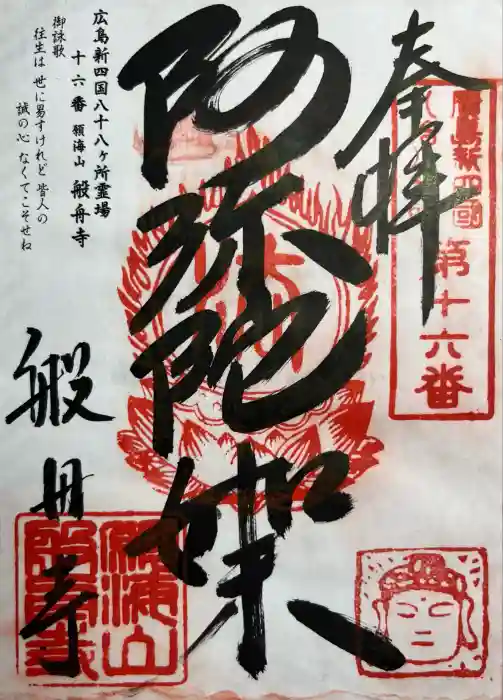 奉拝
廣島新四國
第十六番
阿弥陀如来
広島新四国八十八ヶ所霊場
十六番 領海山 般舟寺
御詠歌
往生は 世に易すけれど 皆人の
誠の心 なくてこそせね
般舟寺